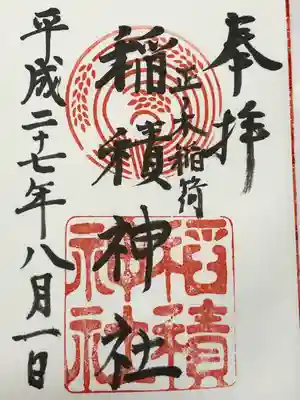 奉拝
正ノ木稲荷
稲積神社
稲積神社
平成二十七年八月一日